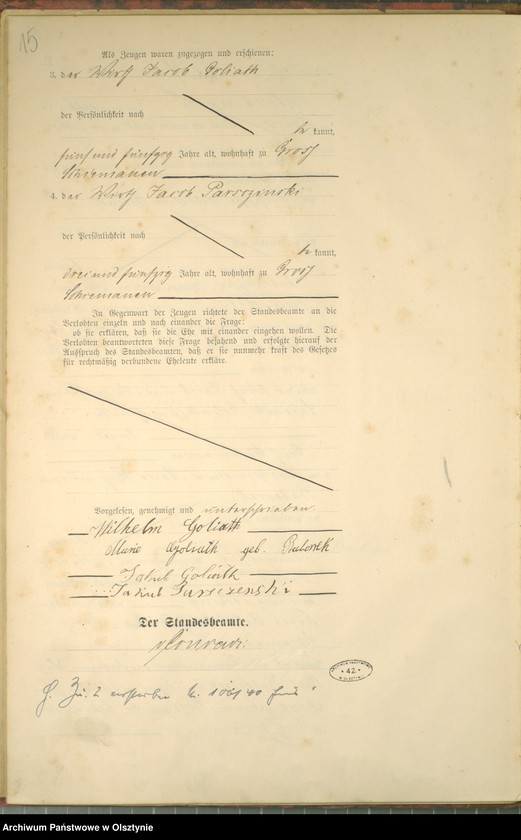 15
Als Zeugen waren zugezogen und erschienen:
3. der Wirth Jacob Goliath
der Persönlichkeit nach
be kannt,
fünf und fünfzig Jahre alt, wohnhaft zu Gross
Schiemanen
4. der Wirth Jacob Paroszinski
der Persönlichkeit nach
be kannt,
drei und fünfzig Jahre alt, wohnhaft zu Gross
Schiemanen
In Gegenwart der Zeugen richtete der Standesbeamte an die
Verlobten einzeln und nach einander die Frage:
ob sie erklären, daß sie die Ehe mit einander eingehen wollen. Die
Verlobten beantworteten diese Frage bejahend und erfolgte hierauf der
Ausspruch des Standesbeamten, daß er sie nunmehr kraft des Gesetzes
für rechtmäßig verbundene Eheleute erkläre.
Vorgelesen, genehmigt und unterschrieben
Wilhelm Goliath
Marie Goliath geb.
Jakub Goliath
Jakub
Der Standesbeamte.
42
Archiwum Państwowe w Olsztynie